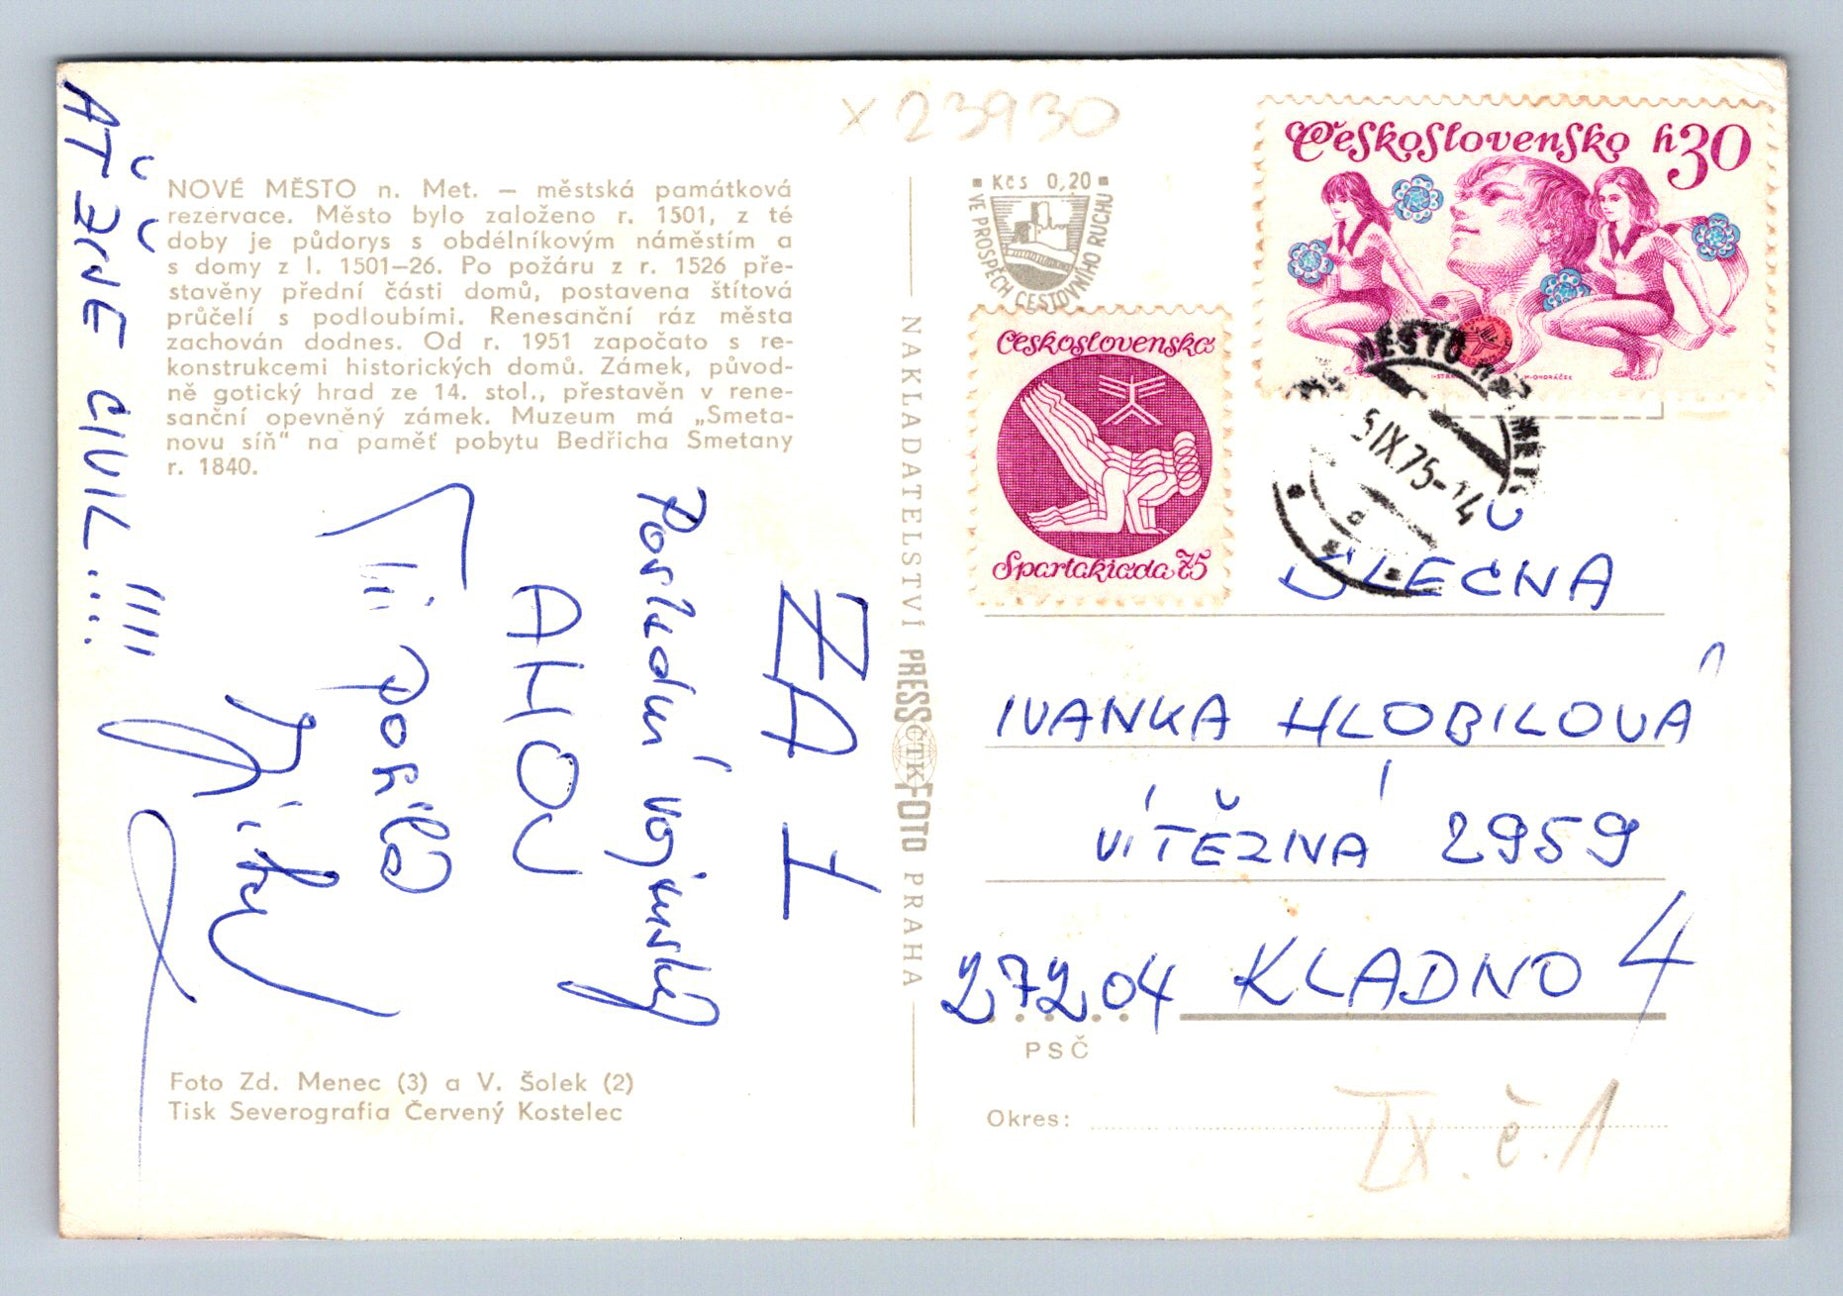 x 23930
NOVÉ MĚSTO n. Met. – městská památková
rezervace. Město bylo založeno r. 1501, z té
doby je půdorys s obdélníkovým náměstím a
s domy z l. 1501–26. Po požáru z r. 1526 pře-
stavěny přední části domů, postavena štítová
průčelí s podloubími. Renesanční ráz města
zachován dodnes. Od r. 1951 započato s re-
konstrukcemi historických domů. Zámek, původ-
ně gotický hrad ze 14. stol., přestavěn v rene-
sanční opevněný zámek. Muzeum má „Smeta-
novu síň“ na paměť pobytu Bedřicha Smetany
r. 1840.
ZA 1
Poslední vojenský
AHOJ
Ti posílá
AŤ ŽIJE CIVIL....!!!!
Foto Zd. Menec (3) a V. Šolek (2)
Tisk Severografia Červený Kostelec
NAKLADATELSTVÍ PRESSFOTO PRAHA
ČTK
Kčs 0,20
VE PROSPĚCH CESTOVNÍHO RUCHU
Československo h30
Československo
Spartakiada 75
MĚSTO
5.IX.75-14
SLEČNA
IVANKA HLOBILOVÁ
VÍTĚZNÁ 2959
27204 KLADNO 4
PSČ
Okres:
IX. č. 1